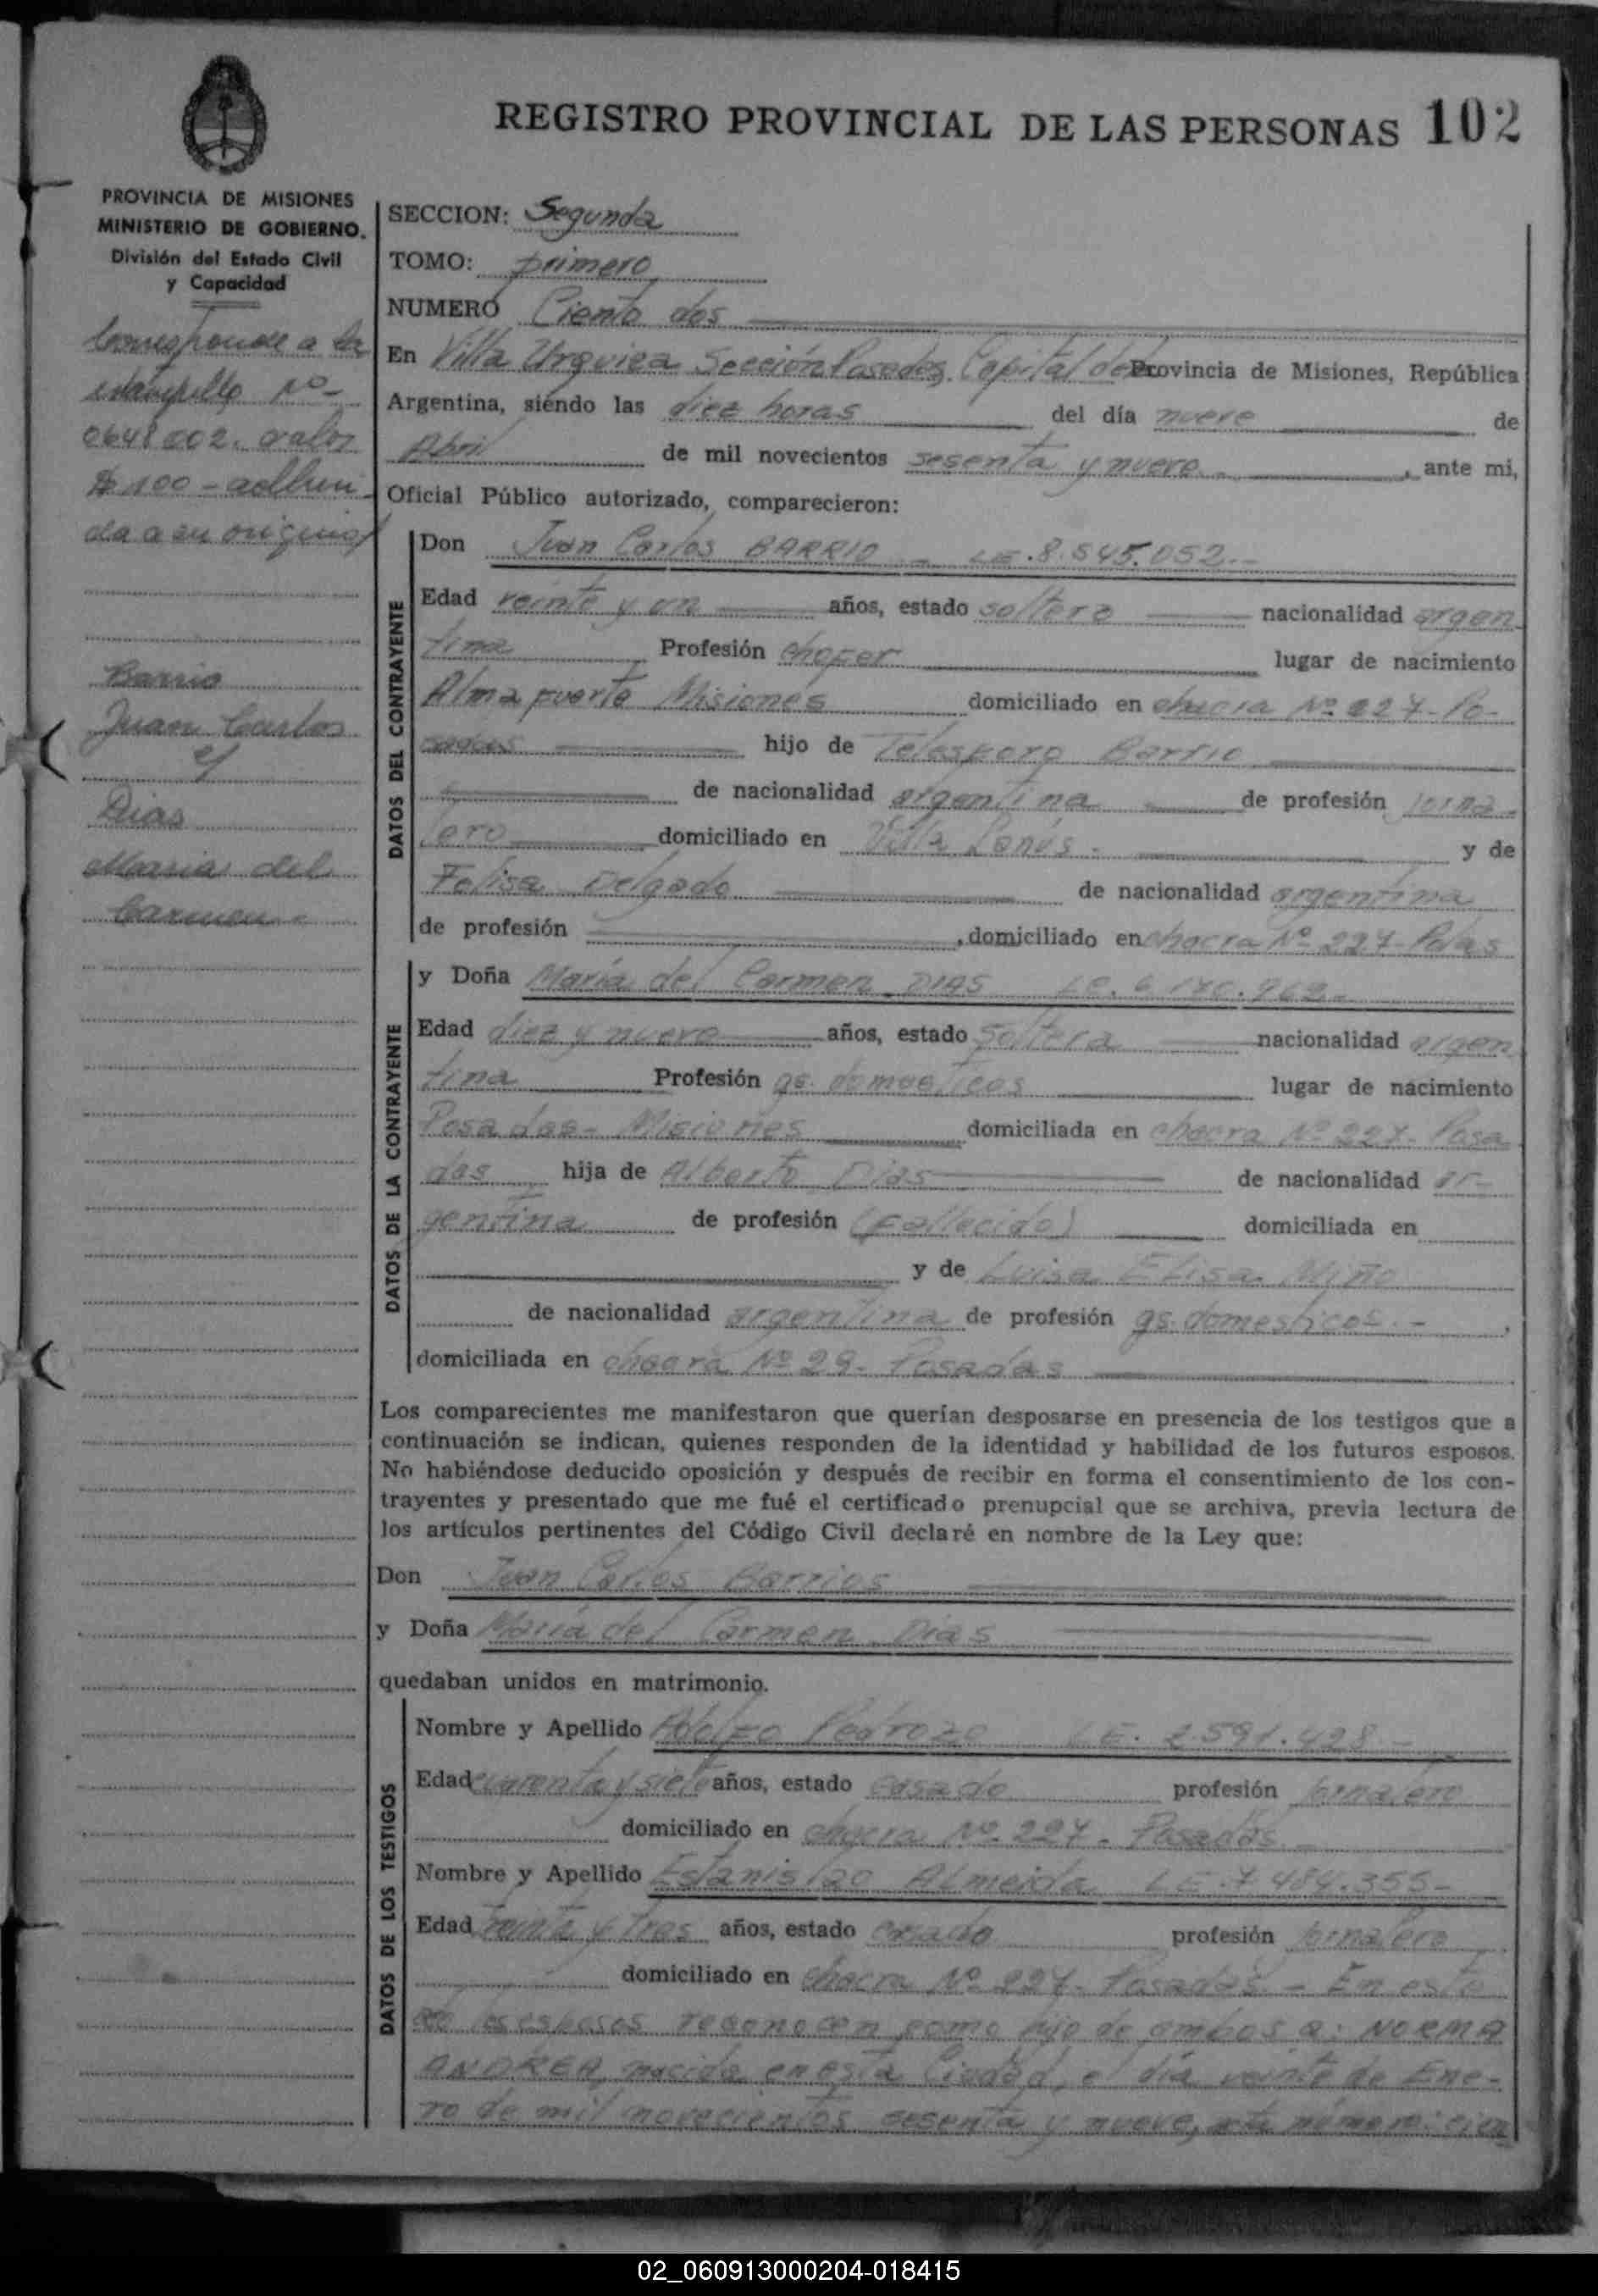 REGISTRO PROVINCIAL DE LAS PERSONAS 102
PROVINCIA DE MISIONES
MINISTERIO DE GOBIERNO.
División del Estado Civil
y Capacidad
Corresponde a la
estampilla Nº
0648002. valor
$ 100 - adheri
da a su original
Barrio
Juan Carlos
y
Dias
Maria del
Carmen
SECCION: Segunda
TOMO: primero
NUMERO Ciento dos
En Villa Urquiza Sección Posadas, Capital de la Provincia de Misiones, República
Argentina, siendo las diez horas del día nueve de
Abril de mil novecientos sesenta y nueve, ante mi,
Oficial Público autorizado, comparecieron:
DATOS DEL CONTRAYENTE
Don Juan Carlos BARRIO - LE. 8.545.052.-
Edad veinte y un años, estado soltero nacionalidad argen
tina Profesión chofer lugar de nacimiento
Alma fuerte Misiones domiciliado en chacra Nº 227- Po-
sadas hijo de Telesforo Barrio
de nacionalidad argentina de profesión jorna-
lero domiciliado en Villa Lanús. y de
Felisa Delgado de nacionalidad argentina
de profesión , domiciliado en chacra Nº 227- Pdas
DATOS DE LA CONTRAYENTE
y Doña María del Carmen DIAS LC. 6.
Edad diez y nueve años, estado soltera nacionalidad argen
tina Profesión qs. domesticos lugar de nacimiento
Posadas- Misiones domiciliada en chacra Nº 227- Posa
das hija de Alberto Dias de nacionalidad ar-
gentina de profesión (Fallecido) domiciliada en
y de Luisa Elisa Miño
de nacionalidad argentina de profesión qs. domesticos.- ,
domiciliada en chacra Nº 29- Posadas
Los comparecientes me manifestaron que querían desposarse en presencia de los testigos que a
continuación se indican, quienes responden de la identidad y habilidad de los futuros esposos.
No habiéndose deducido oposición y después de recibir en forma el consentimiento de los con-
trayentes y presentado que me fué el certificado prenupcial que se archiva, previa lectura de
los artículos pertinentes del Código Civil declaré en nombre de la Ley que:
Don Juan Carlos Barrios
y Doña María del Carmen Dias
quedaban unidos en matrimonio.
DATOS DE LOS TESTIGOS
Nombre y Apellido Adolfo Pedrozo LE. 2.591.428-
Edad cuarenta y siete años, estado casado profesión jornalero
domiciliado en chacra Nº 227- Posadas
Nombre y Apellido Estanislao Almeida LE. 7.484.355-
Edad treinta y tres años, estado casado profesión jornalero
domiciliado en chacra Nº 227- Posadas - En este
los esposos reconocen como hijo de ambos a: NORMA
ANDREA, nacida en esta Ciudad, el día veinte de Ene-
ro de mil novecientos sesenta y nueve, acta número: cien
02_060913000204-018415